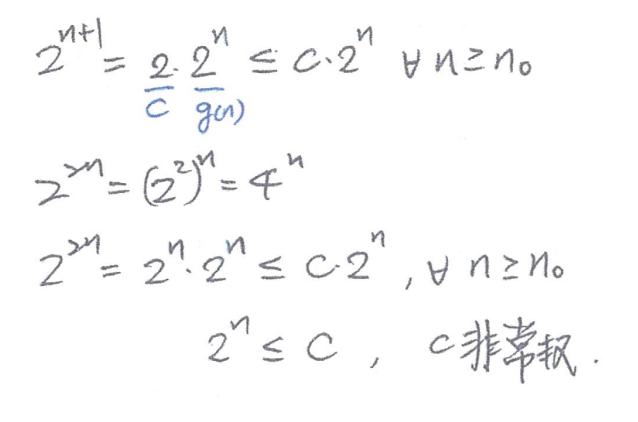 2^{n+1} = 2·2^n ≤ c·2^n ∀ n ≥ n₀
c g(n)
2^{2n} = (2^2)^n = 4^n
2^{2n} = 2^n·2^n ≤ c·2^n , ∀ n ≥ n₀
2^n ≤ c , c 非常数.